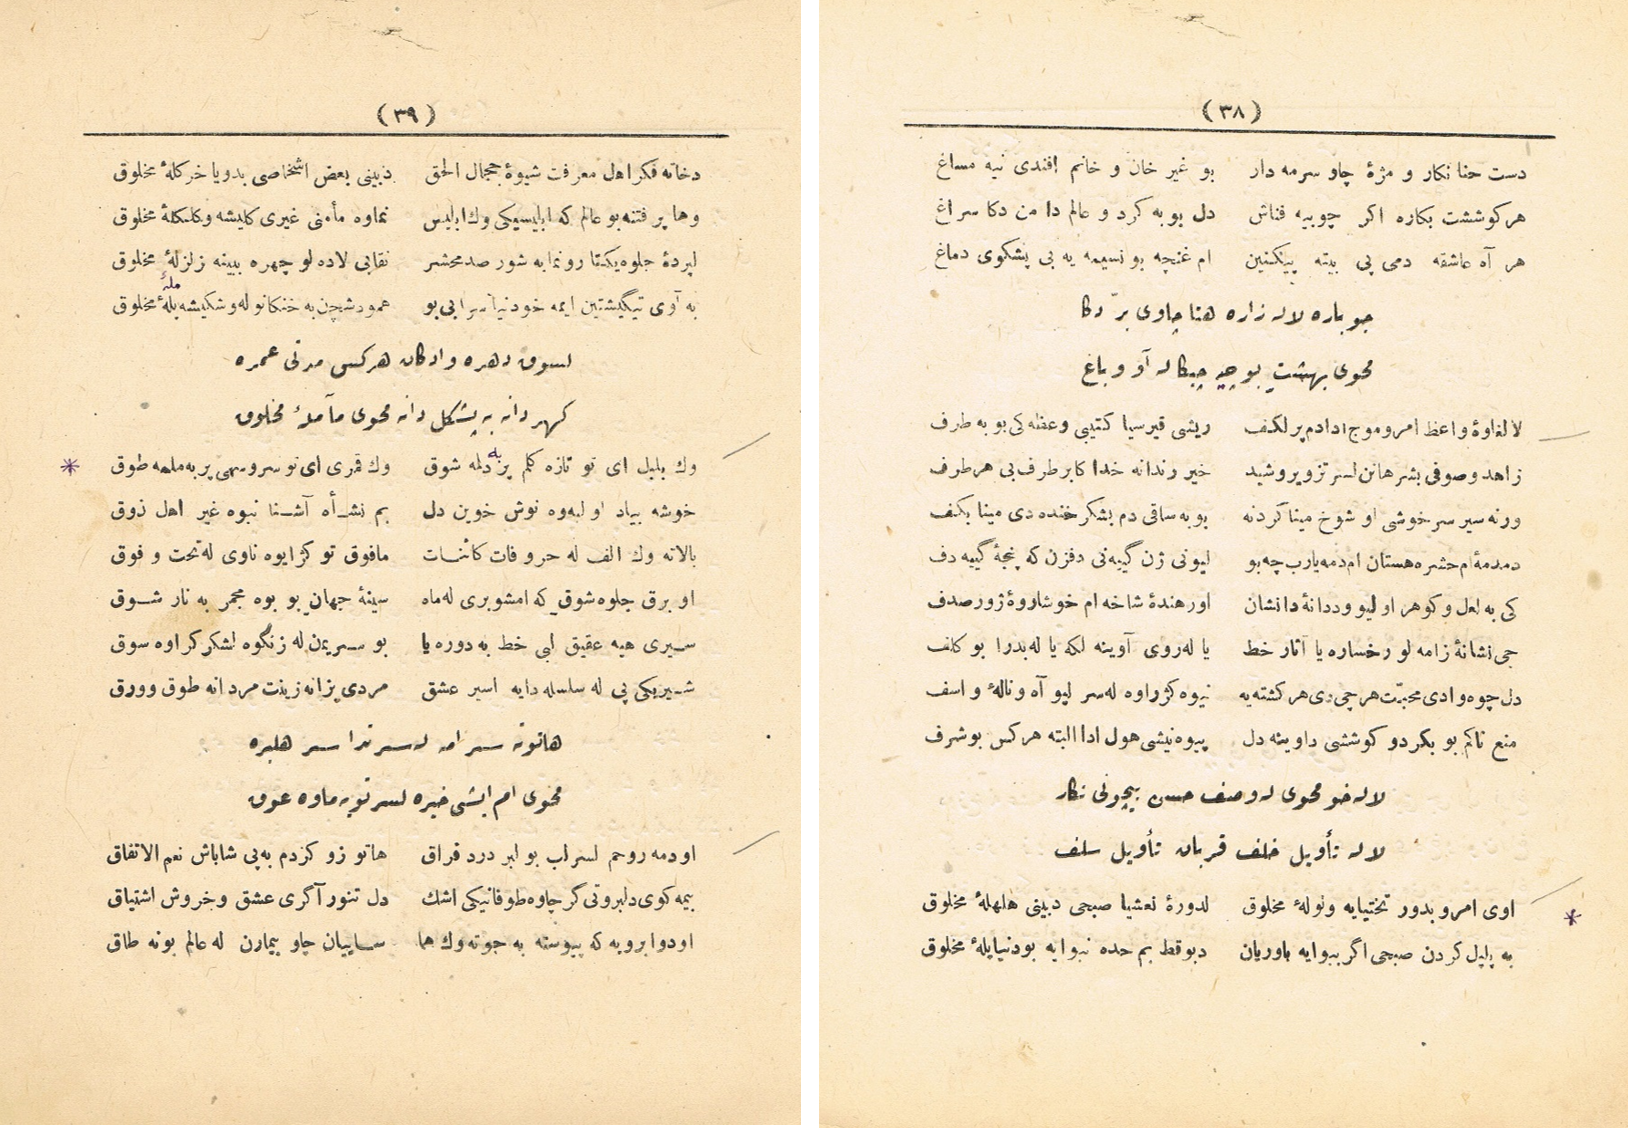 (٣٨)
دست حنا نكار و مژۀ چاو سرمه دار بو غير خان و خانم افندی نيه مساغ
هركوششت بكاره اكر چوبيه فناش دل بو به كرد و عالم دا من دكا سراغ
هر آه عاشقه دمی پی بيته پيكنين ام غنچه بو نسيمه يه بی پشكوی دماغ
جو باره لاله زاره هتا چاوی برّ دكا
محوی بهشت بو چيه چبكا له آو و باغ
لا لغاوۀ واعظ امرو موج ادا دم پر لكف ريشی قير سيا كتيبی وعظه كی بو به طرف
زاهد و صوفی بشر هاتن لسر تزوير و شيد خير رندانه خدا كا بر طرف بی هر طرف
ورنه سير سرخوشی او شوخ مينا كردنه بو به ساقی دم بشكر خنده دی مينا بكف
دمدمۀ ام حشره هستان ام دمه يارب چه بو ليو نی ژن گييه نی دفزن كه پنجۀ گييه دف
كی به لعل و كوهر او ليو وددانۀ دا نشان اور هندۀ شاخه ام خوشاروۀ ژور صدف
جی نشانۀ زامه لو رخساره يا آثار خط يا له روی آوينه لكه يا له بدرا بو كلف
دل چوه وادی محبّت هرچی دی هر كشته يه نيوه كژراوه له سر ليو آه و نالۀ و اسف
منع ناكم بو بكردو كوششی داوينه دل پيوه نيشی هول ادا البته هركس بو شرف
لاله خو محوی له وصف حسن بيچونی نكار
لا له تأويل خلف قربان تأويل سلف
اوی امرو بدور تختيايه ولولۀ مخلوق لدورۀ نعشيا صبحی دبينی هلهلۀ مخلوق
به پلپل كردن صبحی اگر ببوايه باوريان دبو قط بم حده نبوايه بو دنيا پلۀ مخلوق
(٣٩)
دخاته فكر اهل معرفت شيوۀ ججال الحق دبينی بعض اشخاصی بدويا خركلۀ مخلوق
وها پر فتنه بو عالم كه ابليسيكی وك ابليس نماوه مأمنی غيری كليشه وكلسكلۀ مخلوق
لپردۀ جلوه يكتا رونما به شور صد محشر نقابی لاده لو چهره ببينه زلزلۀ مخلوق
به آوی تيگيشتين ايمه خو دنيا سرابی بو عمود شچن به خنكانو له و شكيشه بلۀ مخلوق
ملۀ
لسوق دهره وا دكان هركس مدتی عمره
كهر دانه به پشكل دانه محوی مآملۀ مخلوق
وك بلبل ای تو تازه كلم پر دلمه شوق وك قمری ای تو سرو سهی پر به ملمه طوق
به
خوشه بياد او لبه وه نوش خوين دل بم نشـأه آشـنا نبوه غير اهل ذوق
بالاته وك الف له حروفات كائنـات مافوق تو كژايوه ناوی له تحت و فوق
او برق جلوه شوق كه امشو بری له ماه سينۀ جهان بو بوه مجمر به نار شـوق
سـيری هيه عقيق لبی خط به دوره يا بو سـر يمن له زنگوه لشكر كراوه سوق
شـيريكی پی له سلسله دايه اسير عشق مردی بزانه زينت مردانه طوق وورق
هاتوته سـر امه له سـر ندا سـر هلبره
محوی ام ايشی خيره لسر توبه ماوه عوق
او دمه روحم لسر لب بو لبر درد فراق هاتو زو كردم به پی شاباش نعم الاتفاق
بيمه كوی دلبر وتی گر چاوه طوفانيكی اشك دل تنور آگری عشق و خروش اشتياق
او دوا برويه كه پيوسته به جوته وك هما سـايبان چاو بيمارن له عالم بونه طاق